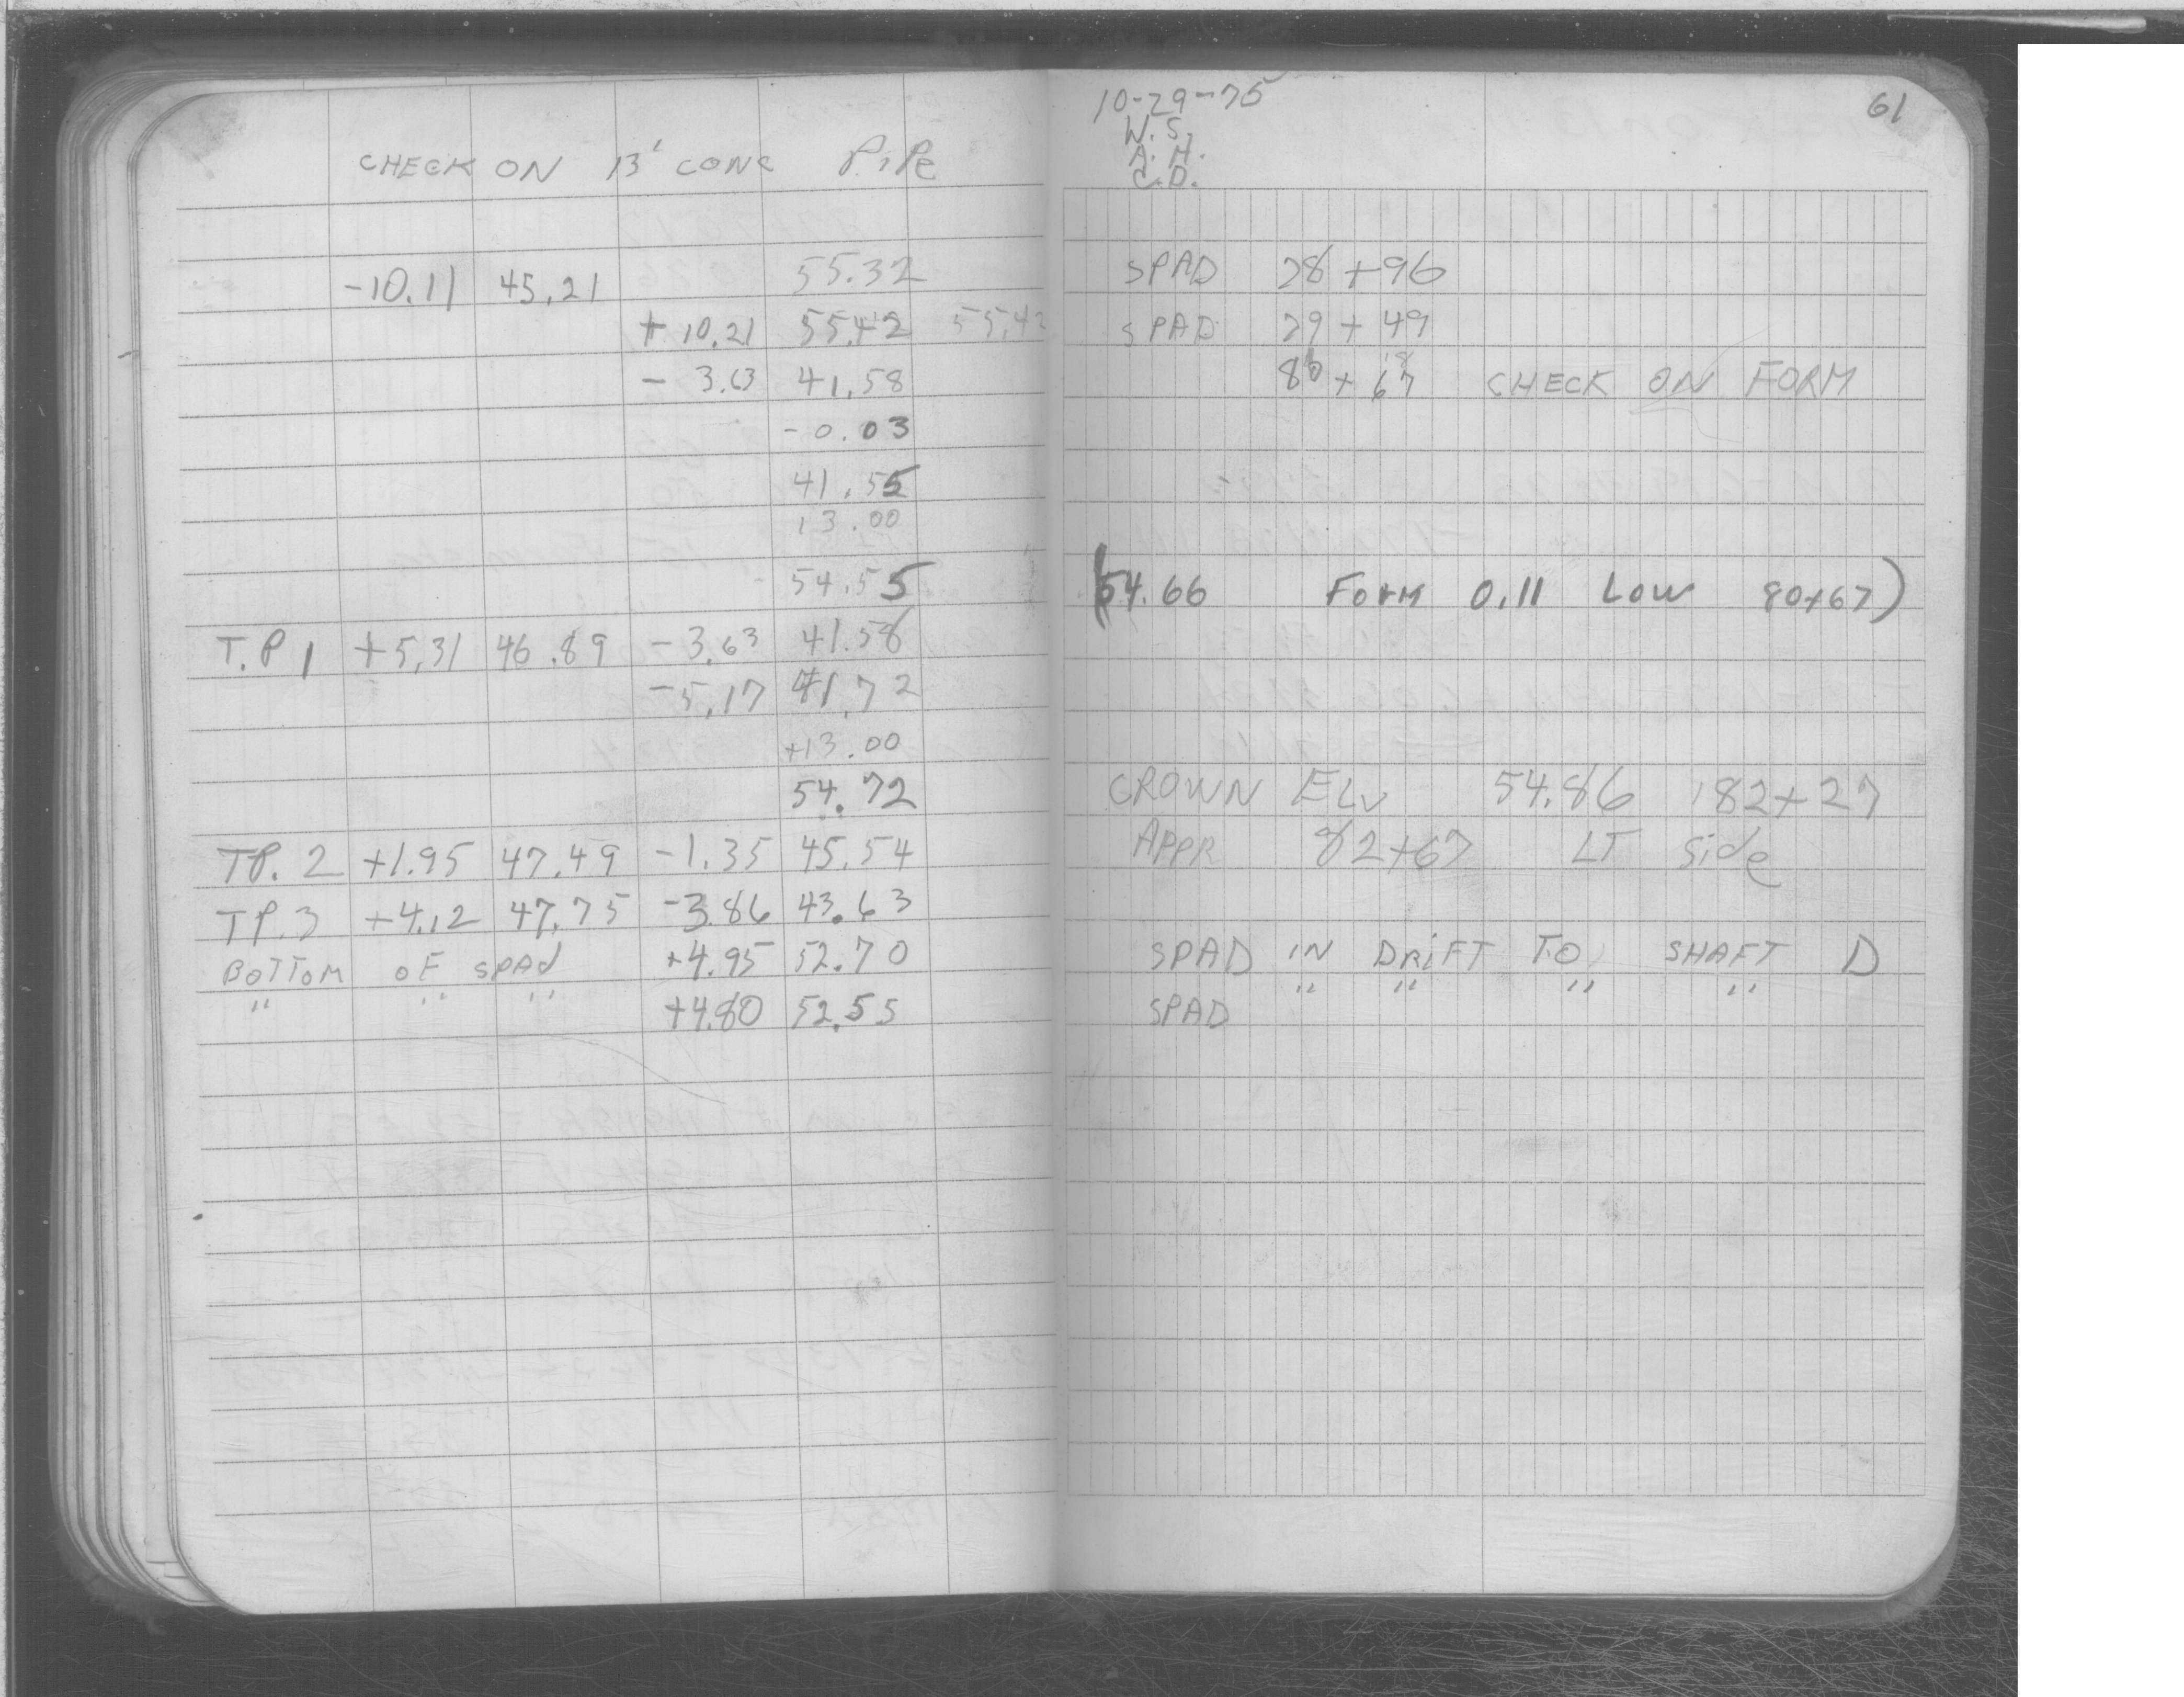 CHECK ON 13' CONC PiPe
55.32
-10.11 45.21
+ 10.21 55.42 55.42
- 3.63 41.58
- 0.03
41.55
13.00
54.55
T.P 1 +5.31 46.89 -3.63 41.58
-5.17 41.72
+13.00
54.72
TP. 2 +1.95 47.49 -1.35 45.54
TP.3 +4.12 47.75 -3.86 43.63
BOTTOM OF SPAd +4.95 52.70
" " " +4.80 52.55
10-29-75
61
W. S.
A. H.
C.D.
SPAD 78+96
SPAD 79+49
80+67 CHECK ON FORM
(54.66 Form 0.11 Low 80+67)
CROWN ELv 54.86 182+27
APPR 82+67 LT Side
SPAD IN DRiFT TO SHAFT D
SPAD " " " "